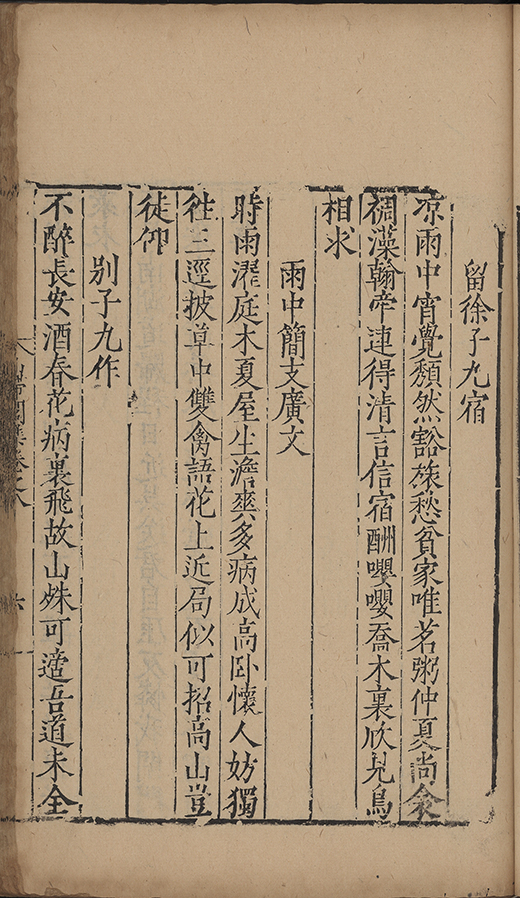 留徐子九宿
凉雨中宵覺頽然豁旅愁貧家唯茗粥仲夏尚衾
裯藻翰牽連得清言信宿酬嚶嚶喬木裏欣見鳥
相求
雨中簡支廣文
時雨濯庭木夏屋生澹爽多病成高卧懷人妨獨
徃三逕披草中雙禽語花上近局似可招高山豈
徒仰
别子九作
不醉長安酒春花病裏飛故山殊可遯吾道未全
歸閒集卷之八
六